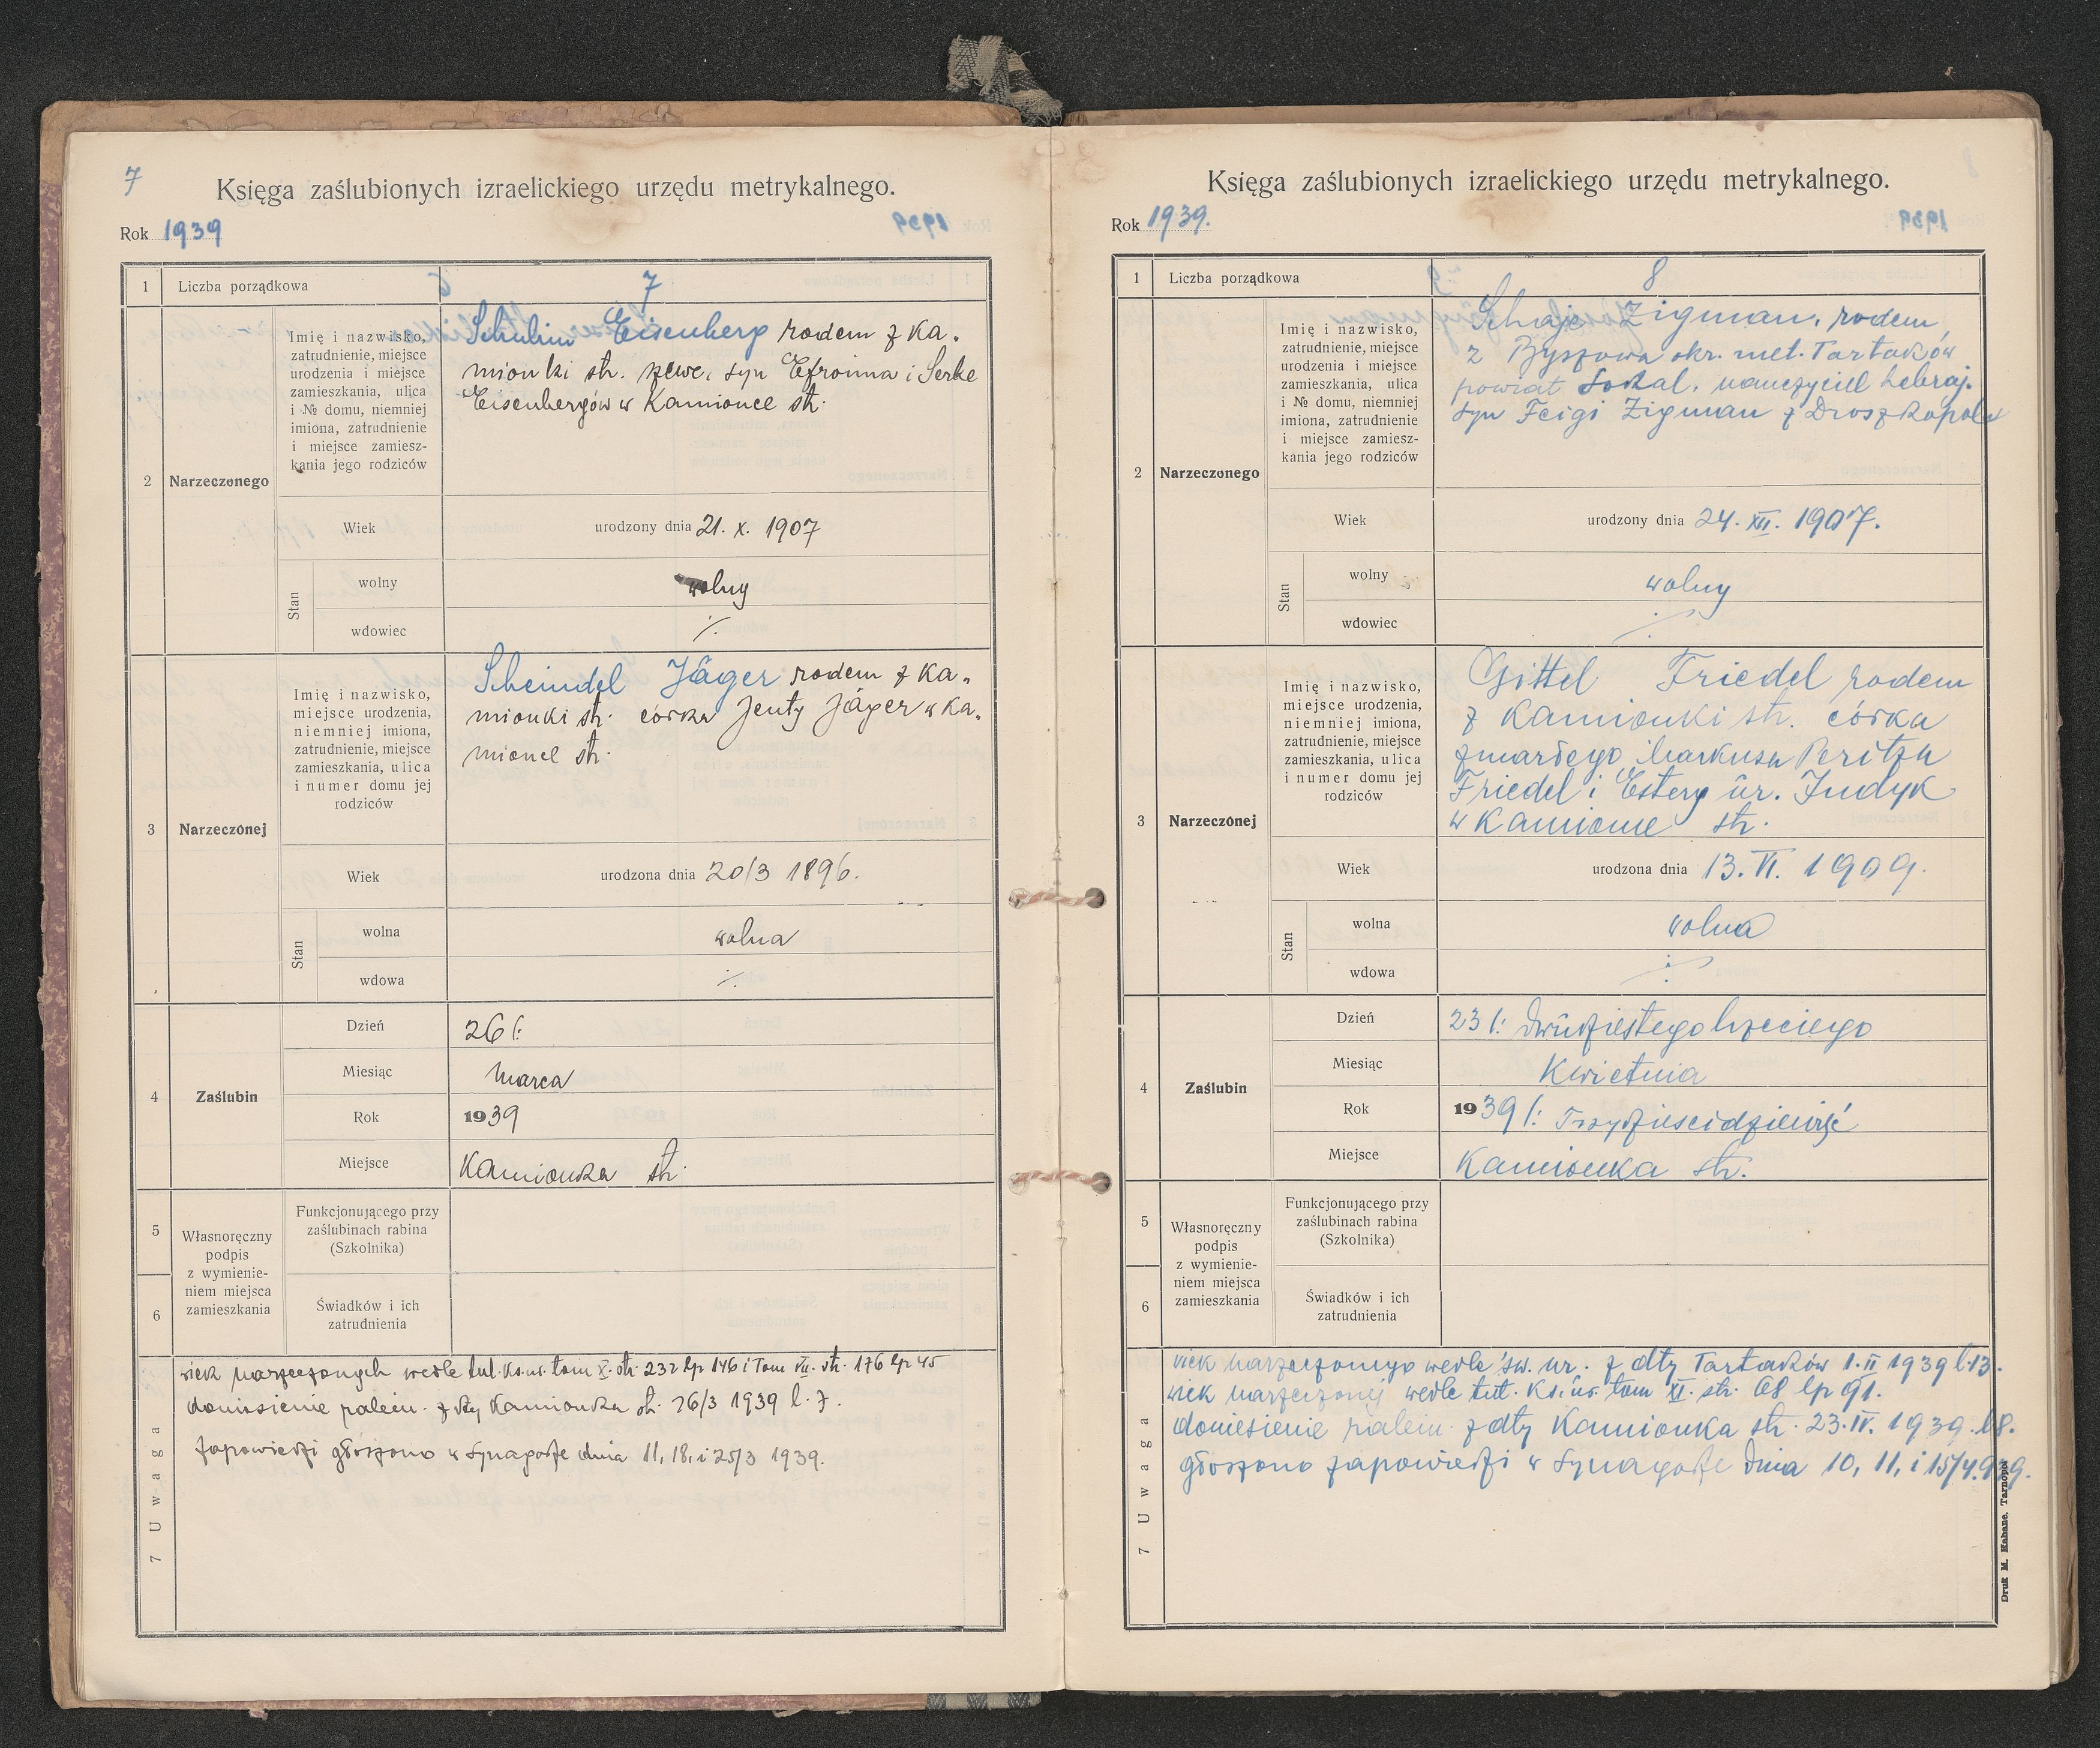 7
Księga zaślubionych izraelickiego urzędu metrykalnego.
Rok 1939
1 Liczba porządkowa 7
2 Narzeczonego
Imię i nazwisko,
zatrudnienie, miejsce
urodzenia i miejsce
zamieszkania, ulica
i № domu, niemniej
imiona, zatrudnienie
i miejsce zamiesz-
kania jego rodziców
Eisenberg rodem z Ka-
mionki str. syn Efroima i Serke
Eisenbergów w Kamionce str.
Wiek urodzony dnia 21. X. 1907
Stan
wolny wolny
wdowiec ·/.
3 Narzeczónej
Imię i nazwisko,
miejsce urodzenia,
niemniej imiona,
zatrudnienie, miejsce
zamieszkania, ulica
i numer domu jej
rodziców
Scheindel Jäger rodem z Ka-
mionki str. córka Jenty Jäger w Ka-
mionce str.
Wiek urodzona dnia 20/3 1896.
Stan
wolna wolna
wdowa ·/.
4 Zaślubin
Dzień 26 /:
Miesiąc Marca
Rok 1939
Miejsce Kamionka str.
5
6
Własnoręczny
podpis
z wymienie-
niem miejsca
zamieszkania
Funkcjonującego przy
zaślubinach rabina
(Szkolnika)
Świadków i ich
zatrudnienia
7 Uwaga
wiek narzeczonych wedle tut. ks. ur. tom X. str. 232 lp 146 i Tom VII. str. 176 lp 45
doniesienie z dty Kamionka str. 26/3 1939 l. 7.
zapowiedzi głoszono w Synagodze dnia 11, 18, i 25/3 1939.
Księga zaślubionych izraelickiego urzędu metrykalnego.
Rok 1939.
1 Liczba porządkowa 8
2 Narzeczonego
Imię i nazwisko,
zatrudnienie, miejsce
urodzenia i miejsce
zamieszkania, ulica
i № domu, niemniej
imiona, zatrudnienie
i miejsce zamiesz-
kania jego rodziców
Schaje Zigman, rodem
z Byszowa okr. met. Tartaków
powiat Sokal, nauczyciel hebraj.
syn Feigi Zigman z Druszkopola
Wiek urodzony dnia 24. XII. 1907.
Stan
wolny wolny
wdowiec ·/.
3 Narzeczónej
Imię i nazwisko,
miejsce urodzenia,
niemniej imiona,
zatrudnienie, miejsce
zamieszkania, ulica
i numer domu jej
rodziców
Gittel Friedel rodem
z Kamionki str. córka
zmarłego Markusa Peritza
Friedel i Estery ur. Indyk
w Kamionce str.
Wiek urodzona dnia 13. VI. 1909.
Stan
wolna wolna
wdowa ·/.
4 Zaślubin
Dzień 23 /: dwudziestego trzeciego
Miesiąc Kwietnia
Rok 1939 /: Trzydzieścidziewięć
Miejsce Kamionka str.
5
6
Własnoręczny
podpis
z wymienie-
niem miejsca
zamieszkania
Funkcjonującego przy
zaślubinach rabina
(Szkolnika)
Świadków i ich
zatrudnienia
7 Uwaga
wiek narzeczonego wedle św. ur. z dty Tartaków 1. II 1939 l. 13.
wiek narzeczonej wedle tut. ks. ur. tom XI. str. 68 lp 91.
doniesienie z dty Kamionka str. 23. IV. 1939. l 8.
głoszono zapowiedzi w Synagodze dnia 10, 11, i 15/4. 939.
Druk M. Kahane, Tarnopol